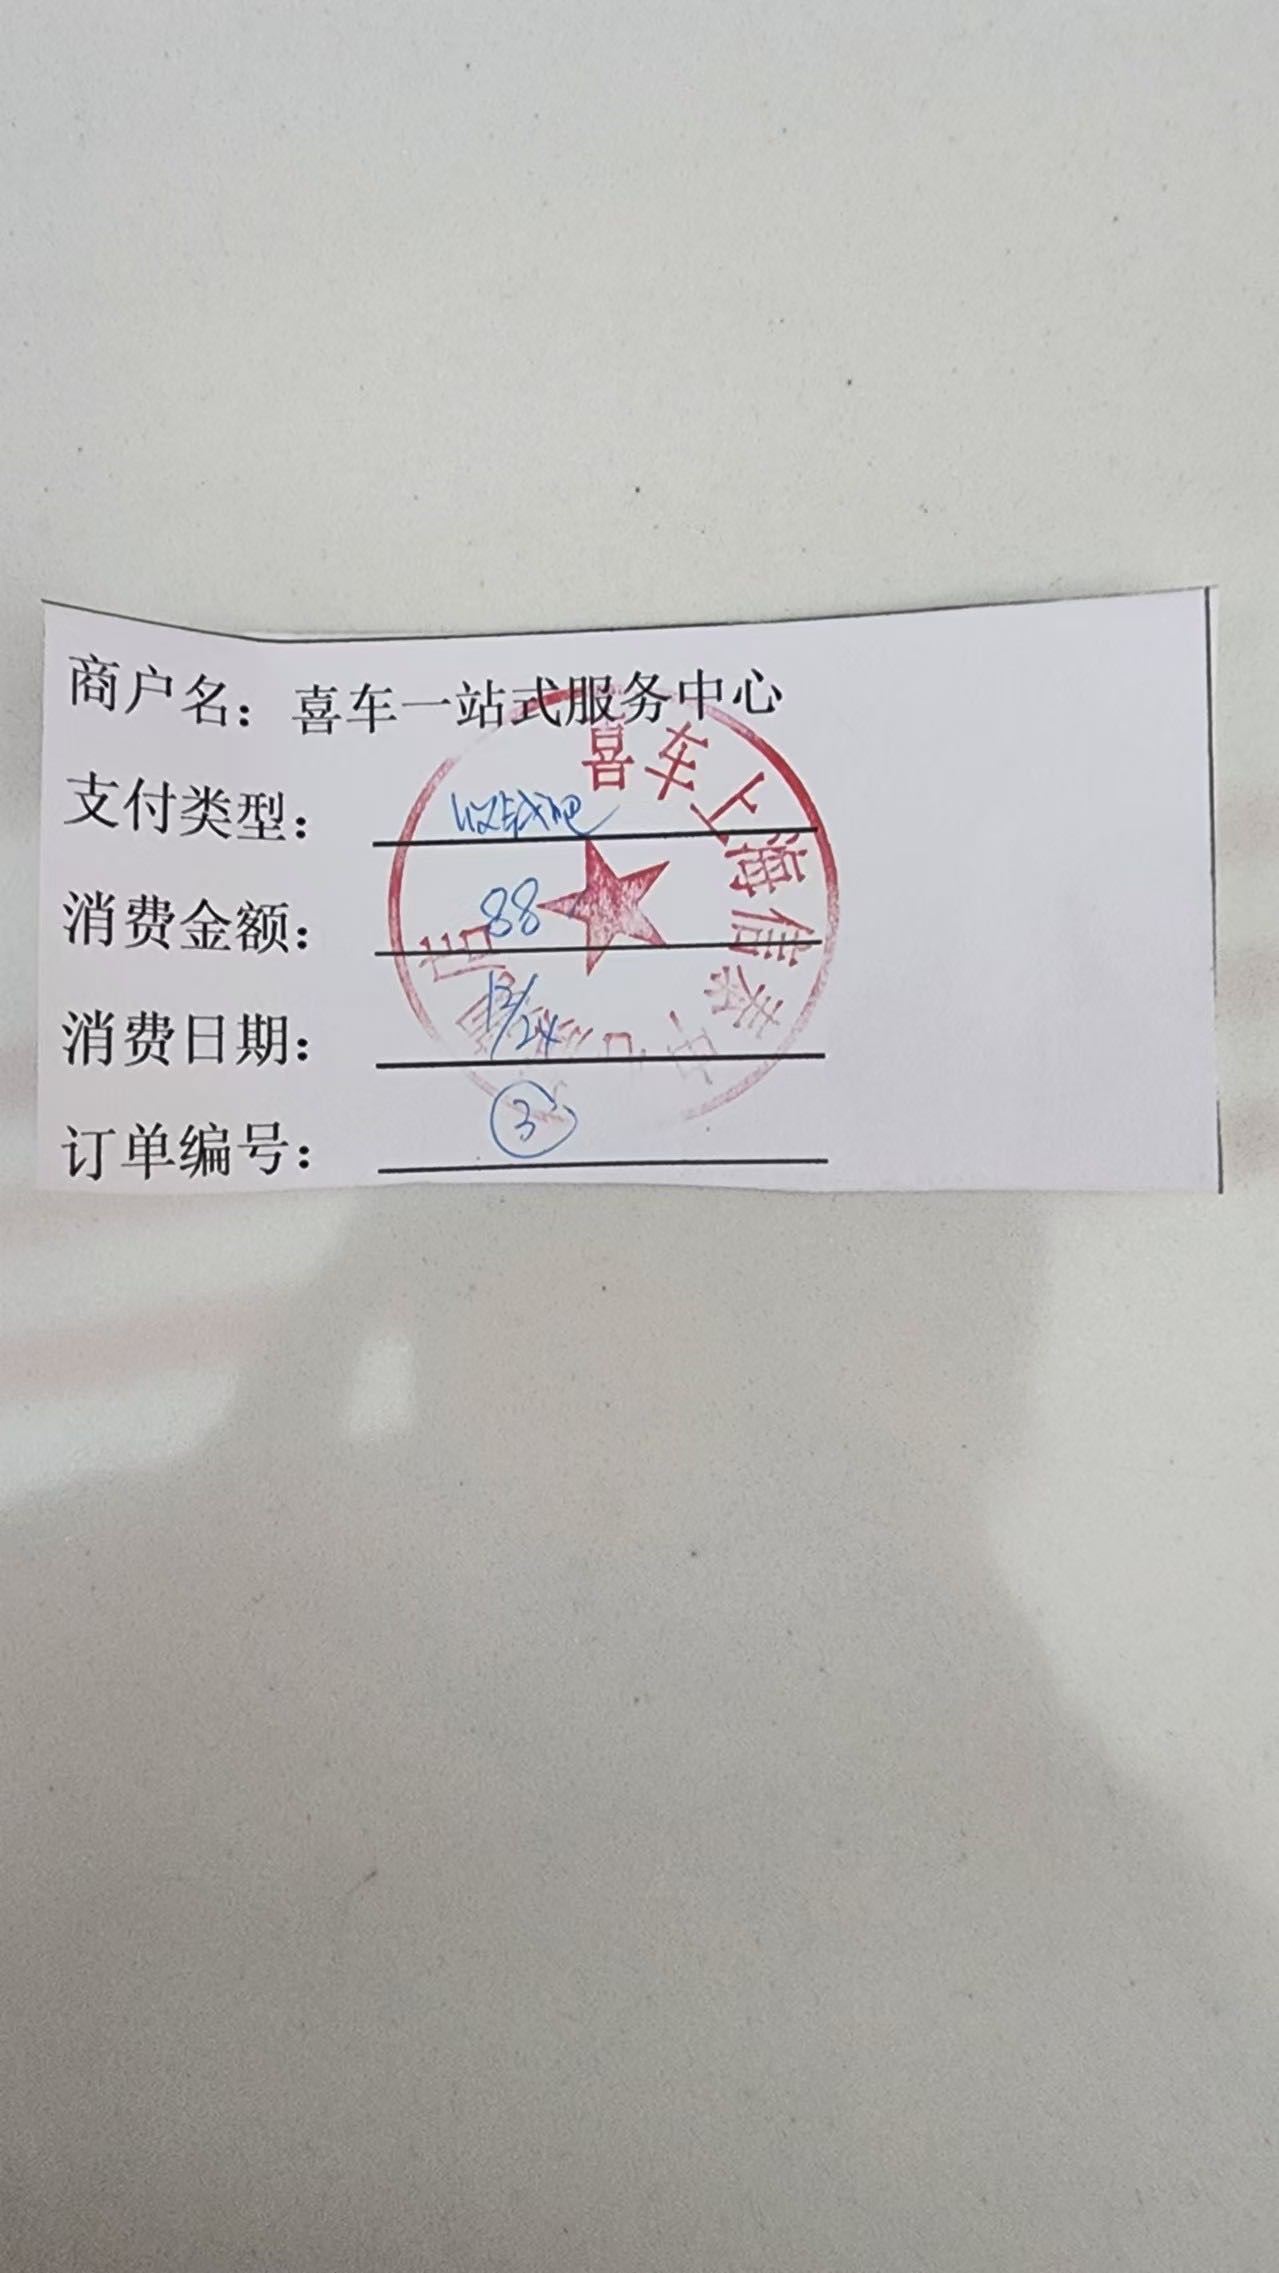 商户名：喜车一站式服务中心
支付类型：收钱吧
消费金额：88
消费日期：12/24
订单编号：3
喜车上海信泰中
司